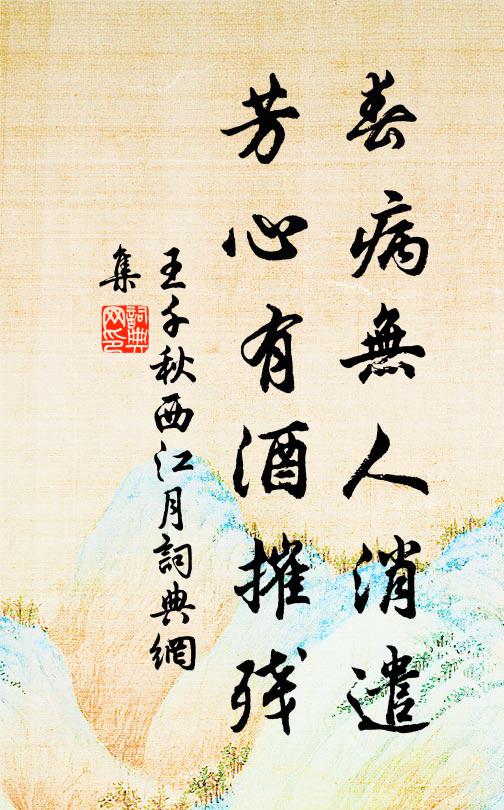 春病無人消遣
芳心有酒摧残
王千秋西江月詞典網
集
詞典
网印